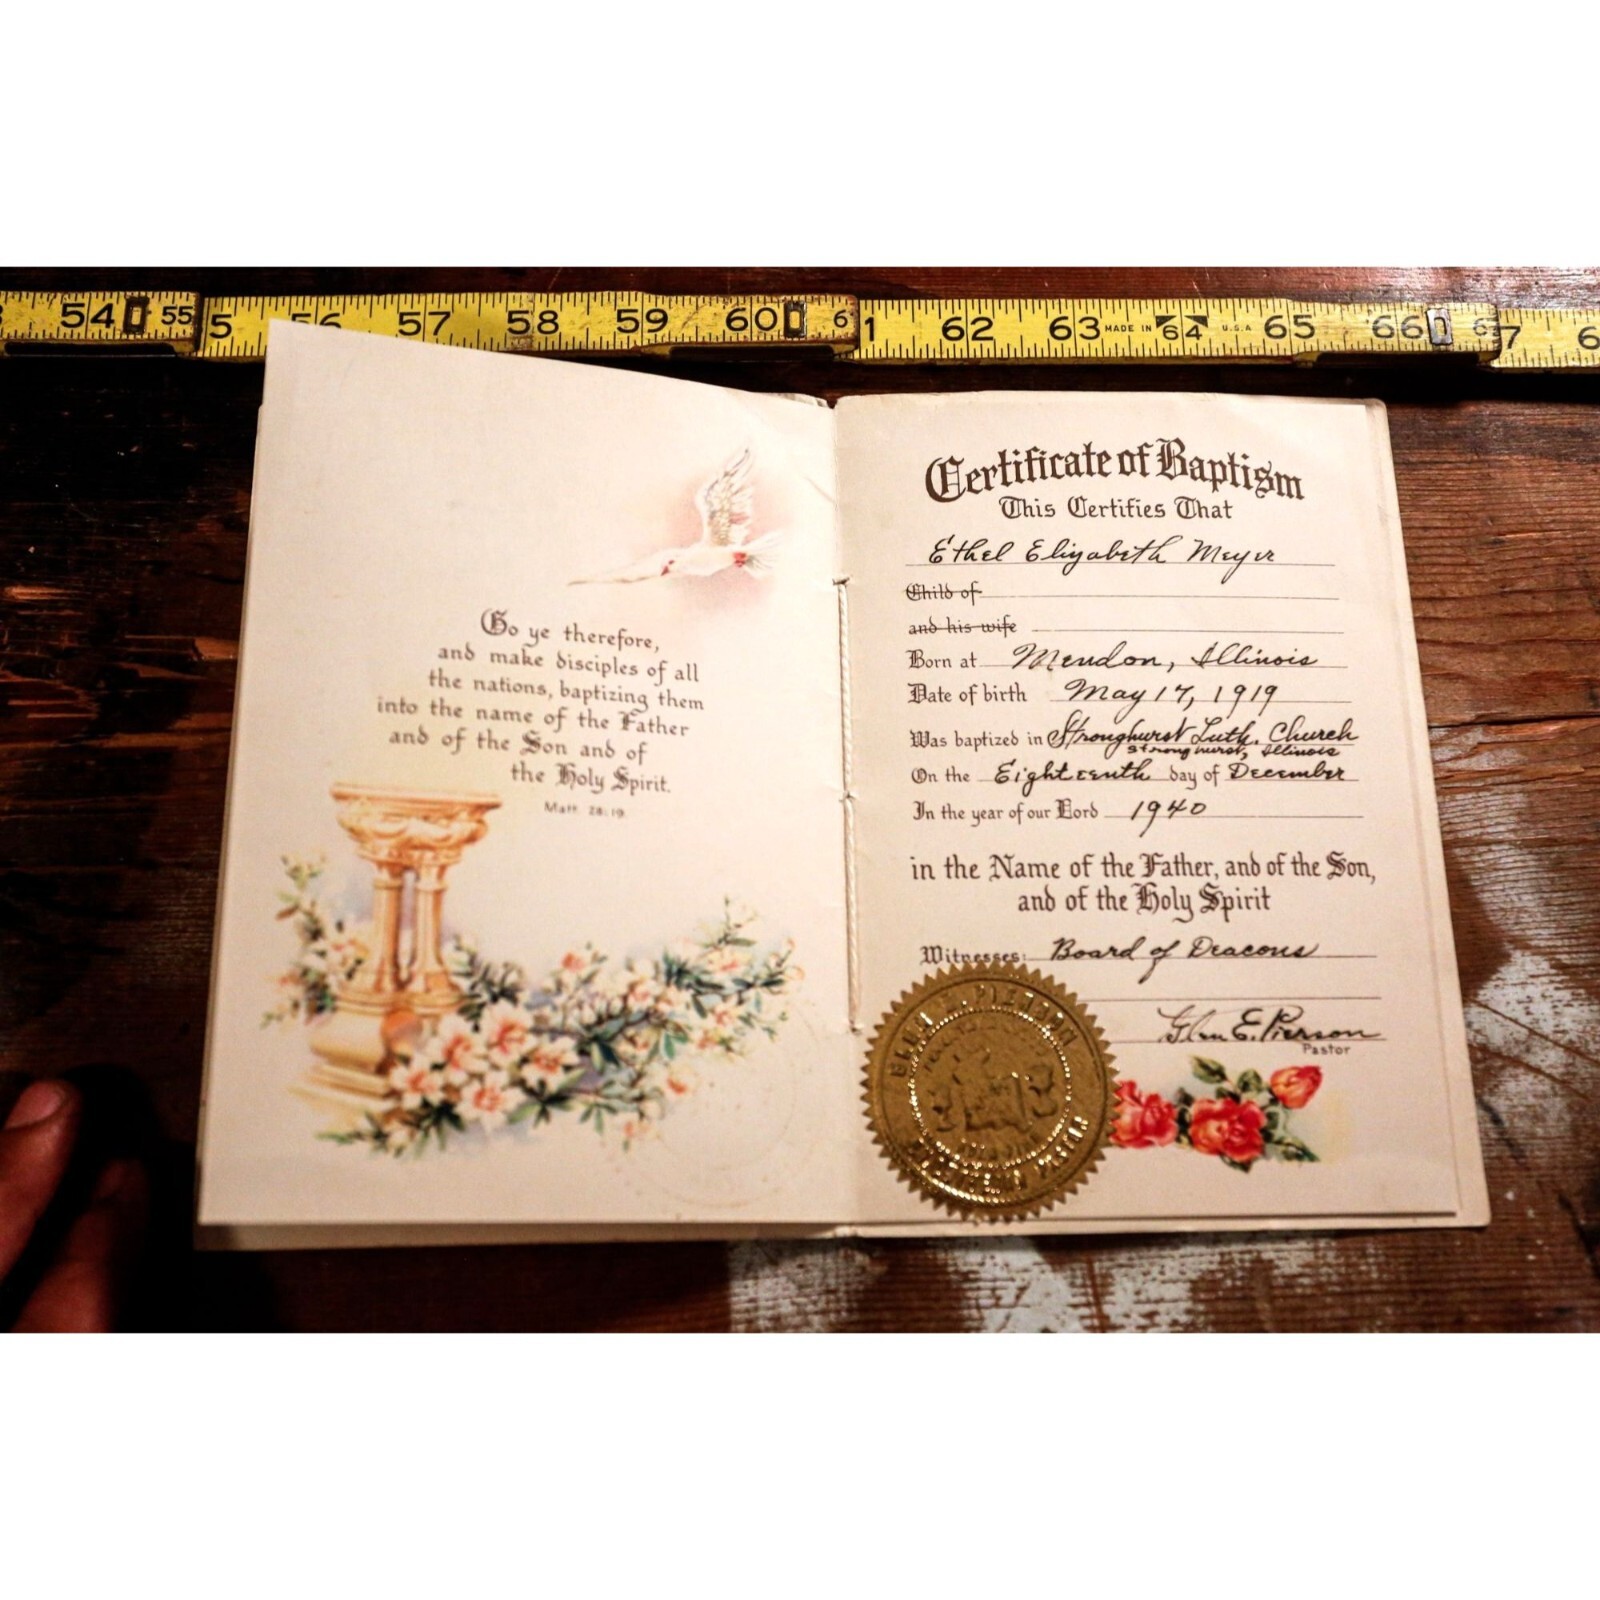 54 55 5 56 57 58 59 60 6 1 62 63 MADE IN 64 U.S.A 65 66 6 7 6
Go ye therefore,
and make disciples of all
the nations, baptizing them
into the name of the Father
and of the Son and of
the Holy Spirit.
Matt. 28:19.
Certificate of Baptism
This Certifies That
Ethel Elizabeth Meyer
Child of
and his wife
Born at Mendon, Illinois
Date of birth May 17, 1919
Was baptized in Stronghurst Luth. Church
Stronghurst, Illinois
On the Eighteenth day of December
In the year of our Lord 1940
in the Name of the Father, and of the Son,
and of the Holy Spirit
Witnesses: Board of Deacons
Glen E. Pierson
Pastor
PIERSON